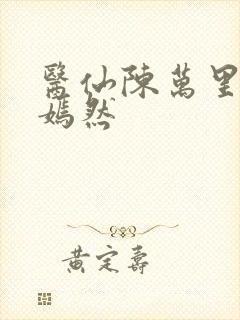 醫仙陳萬里
嫣然
黃定壽